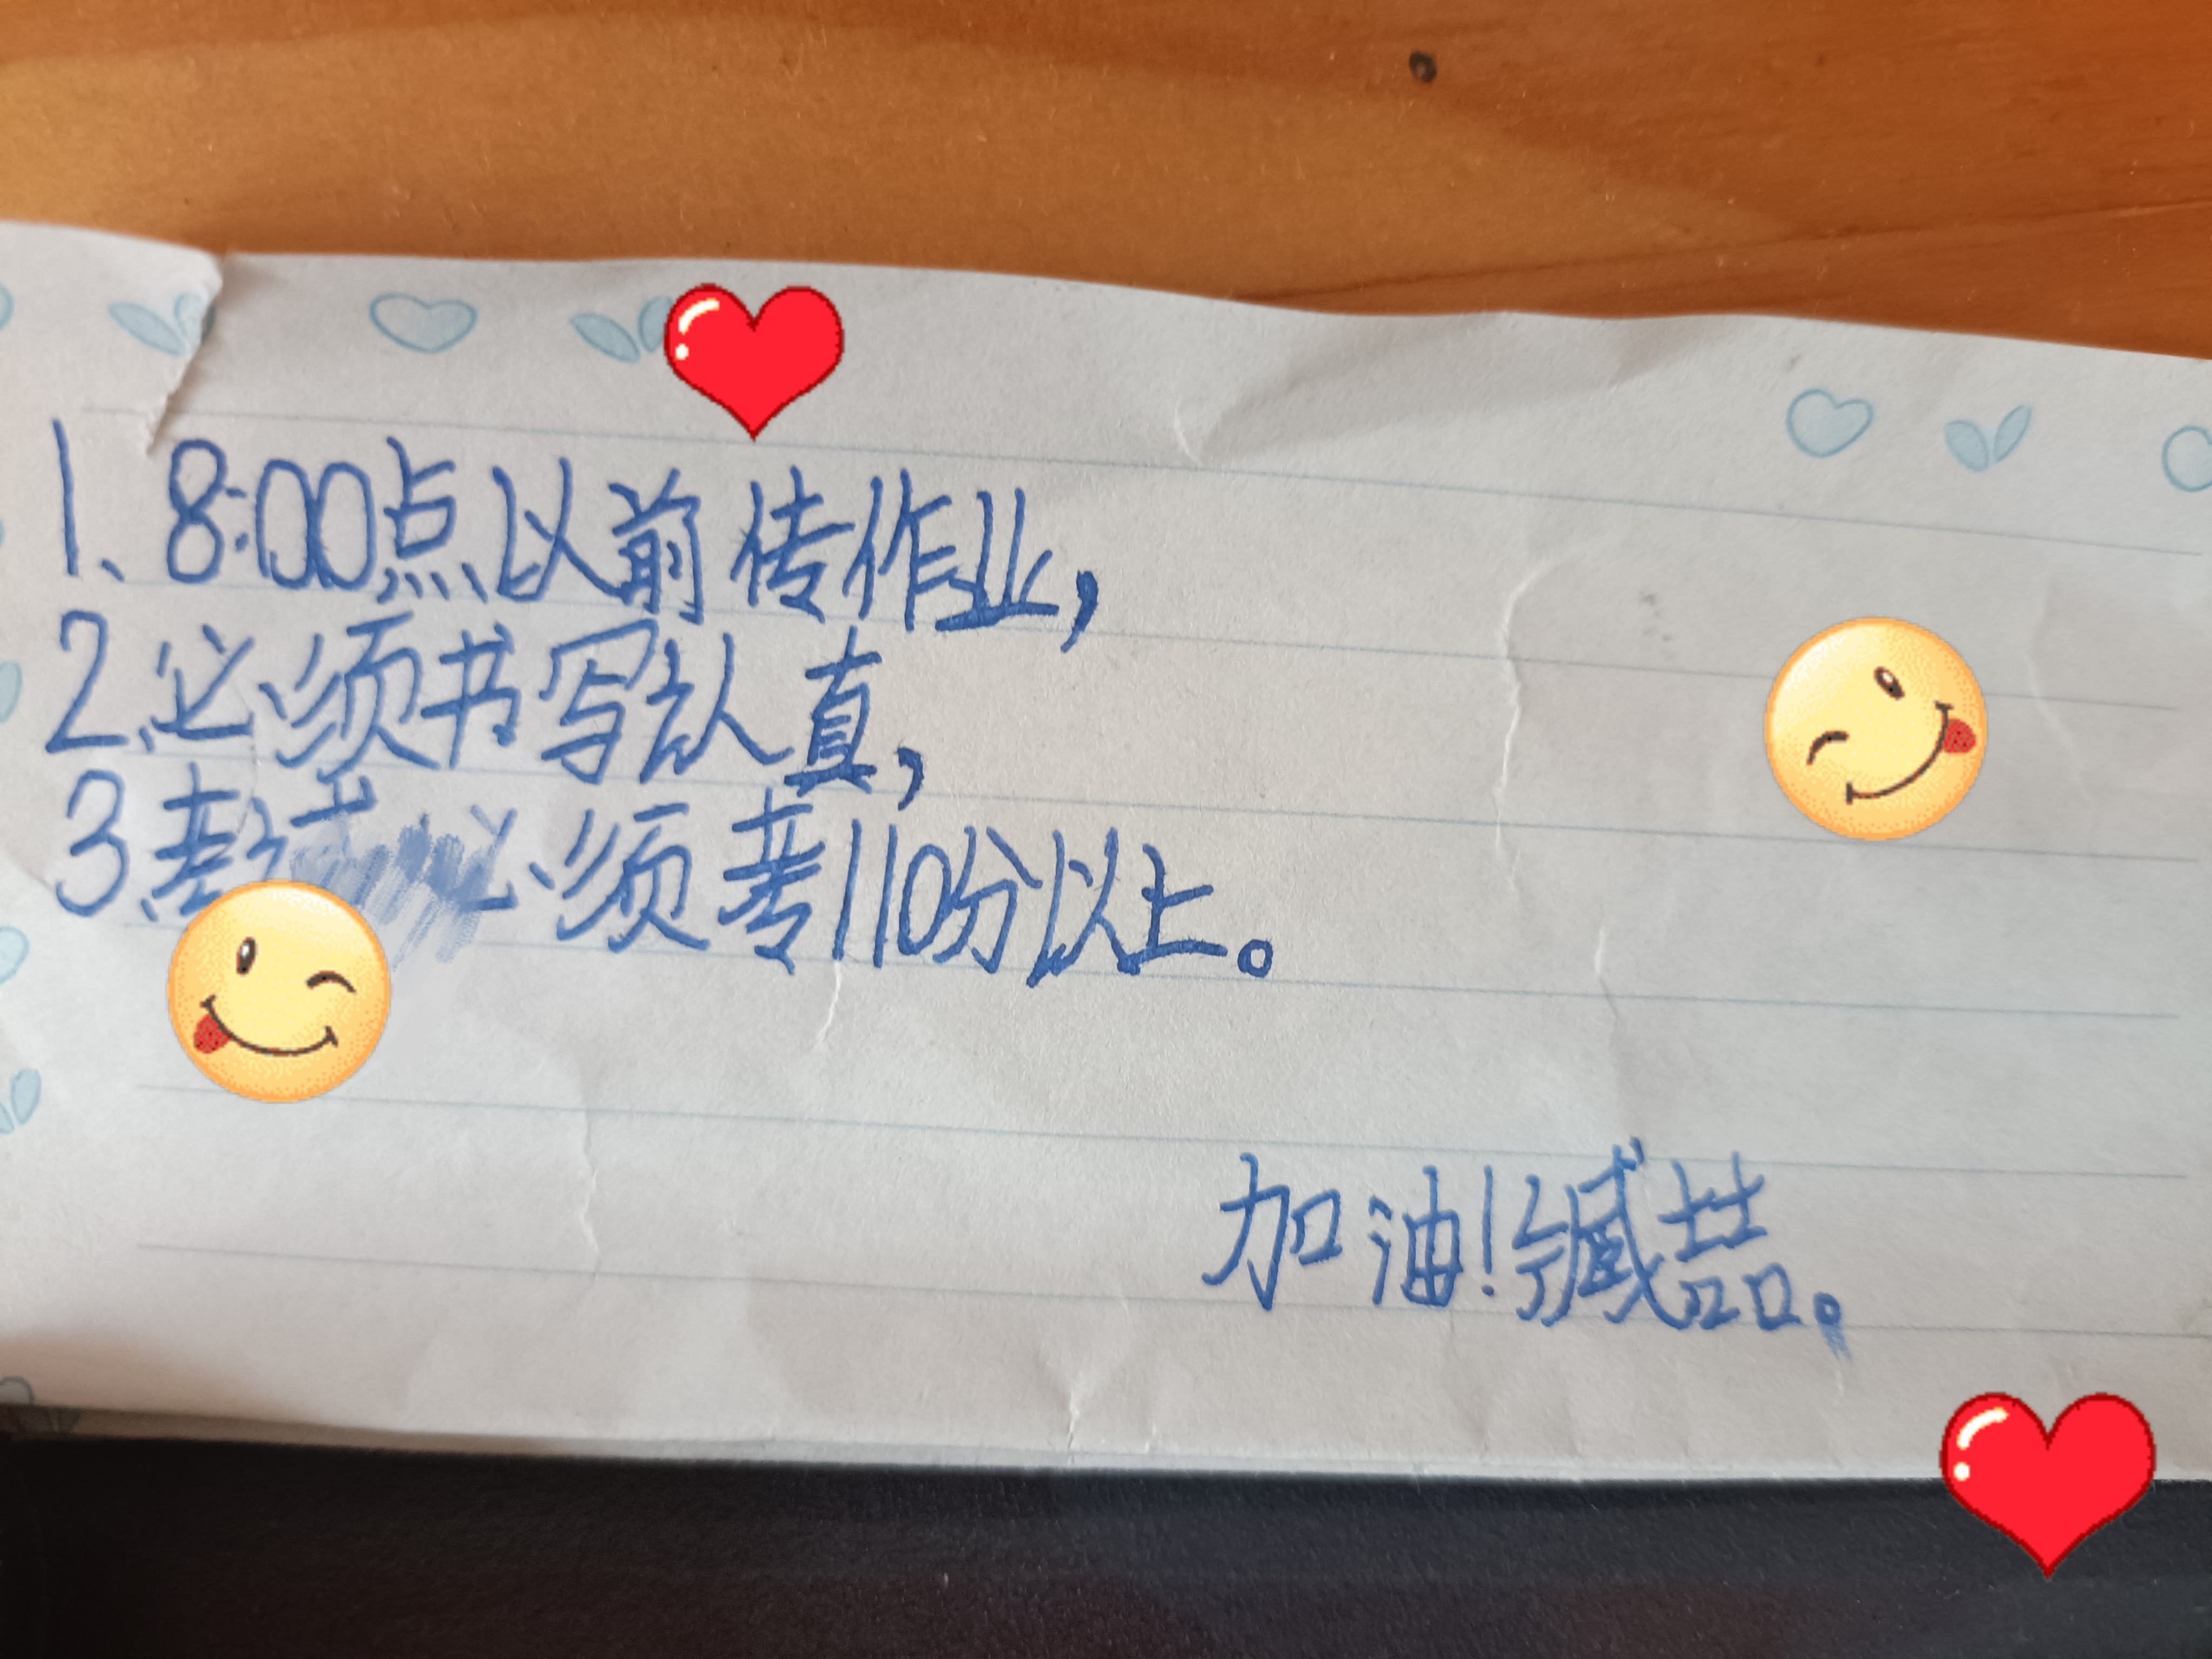 1、8:00点以前传作业,
2、必须书写认真,
3、必须考110分以上。
加油!缄喆。